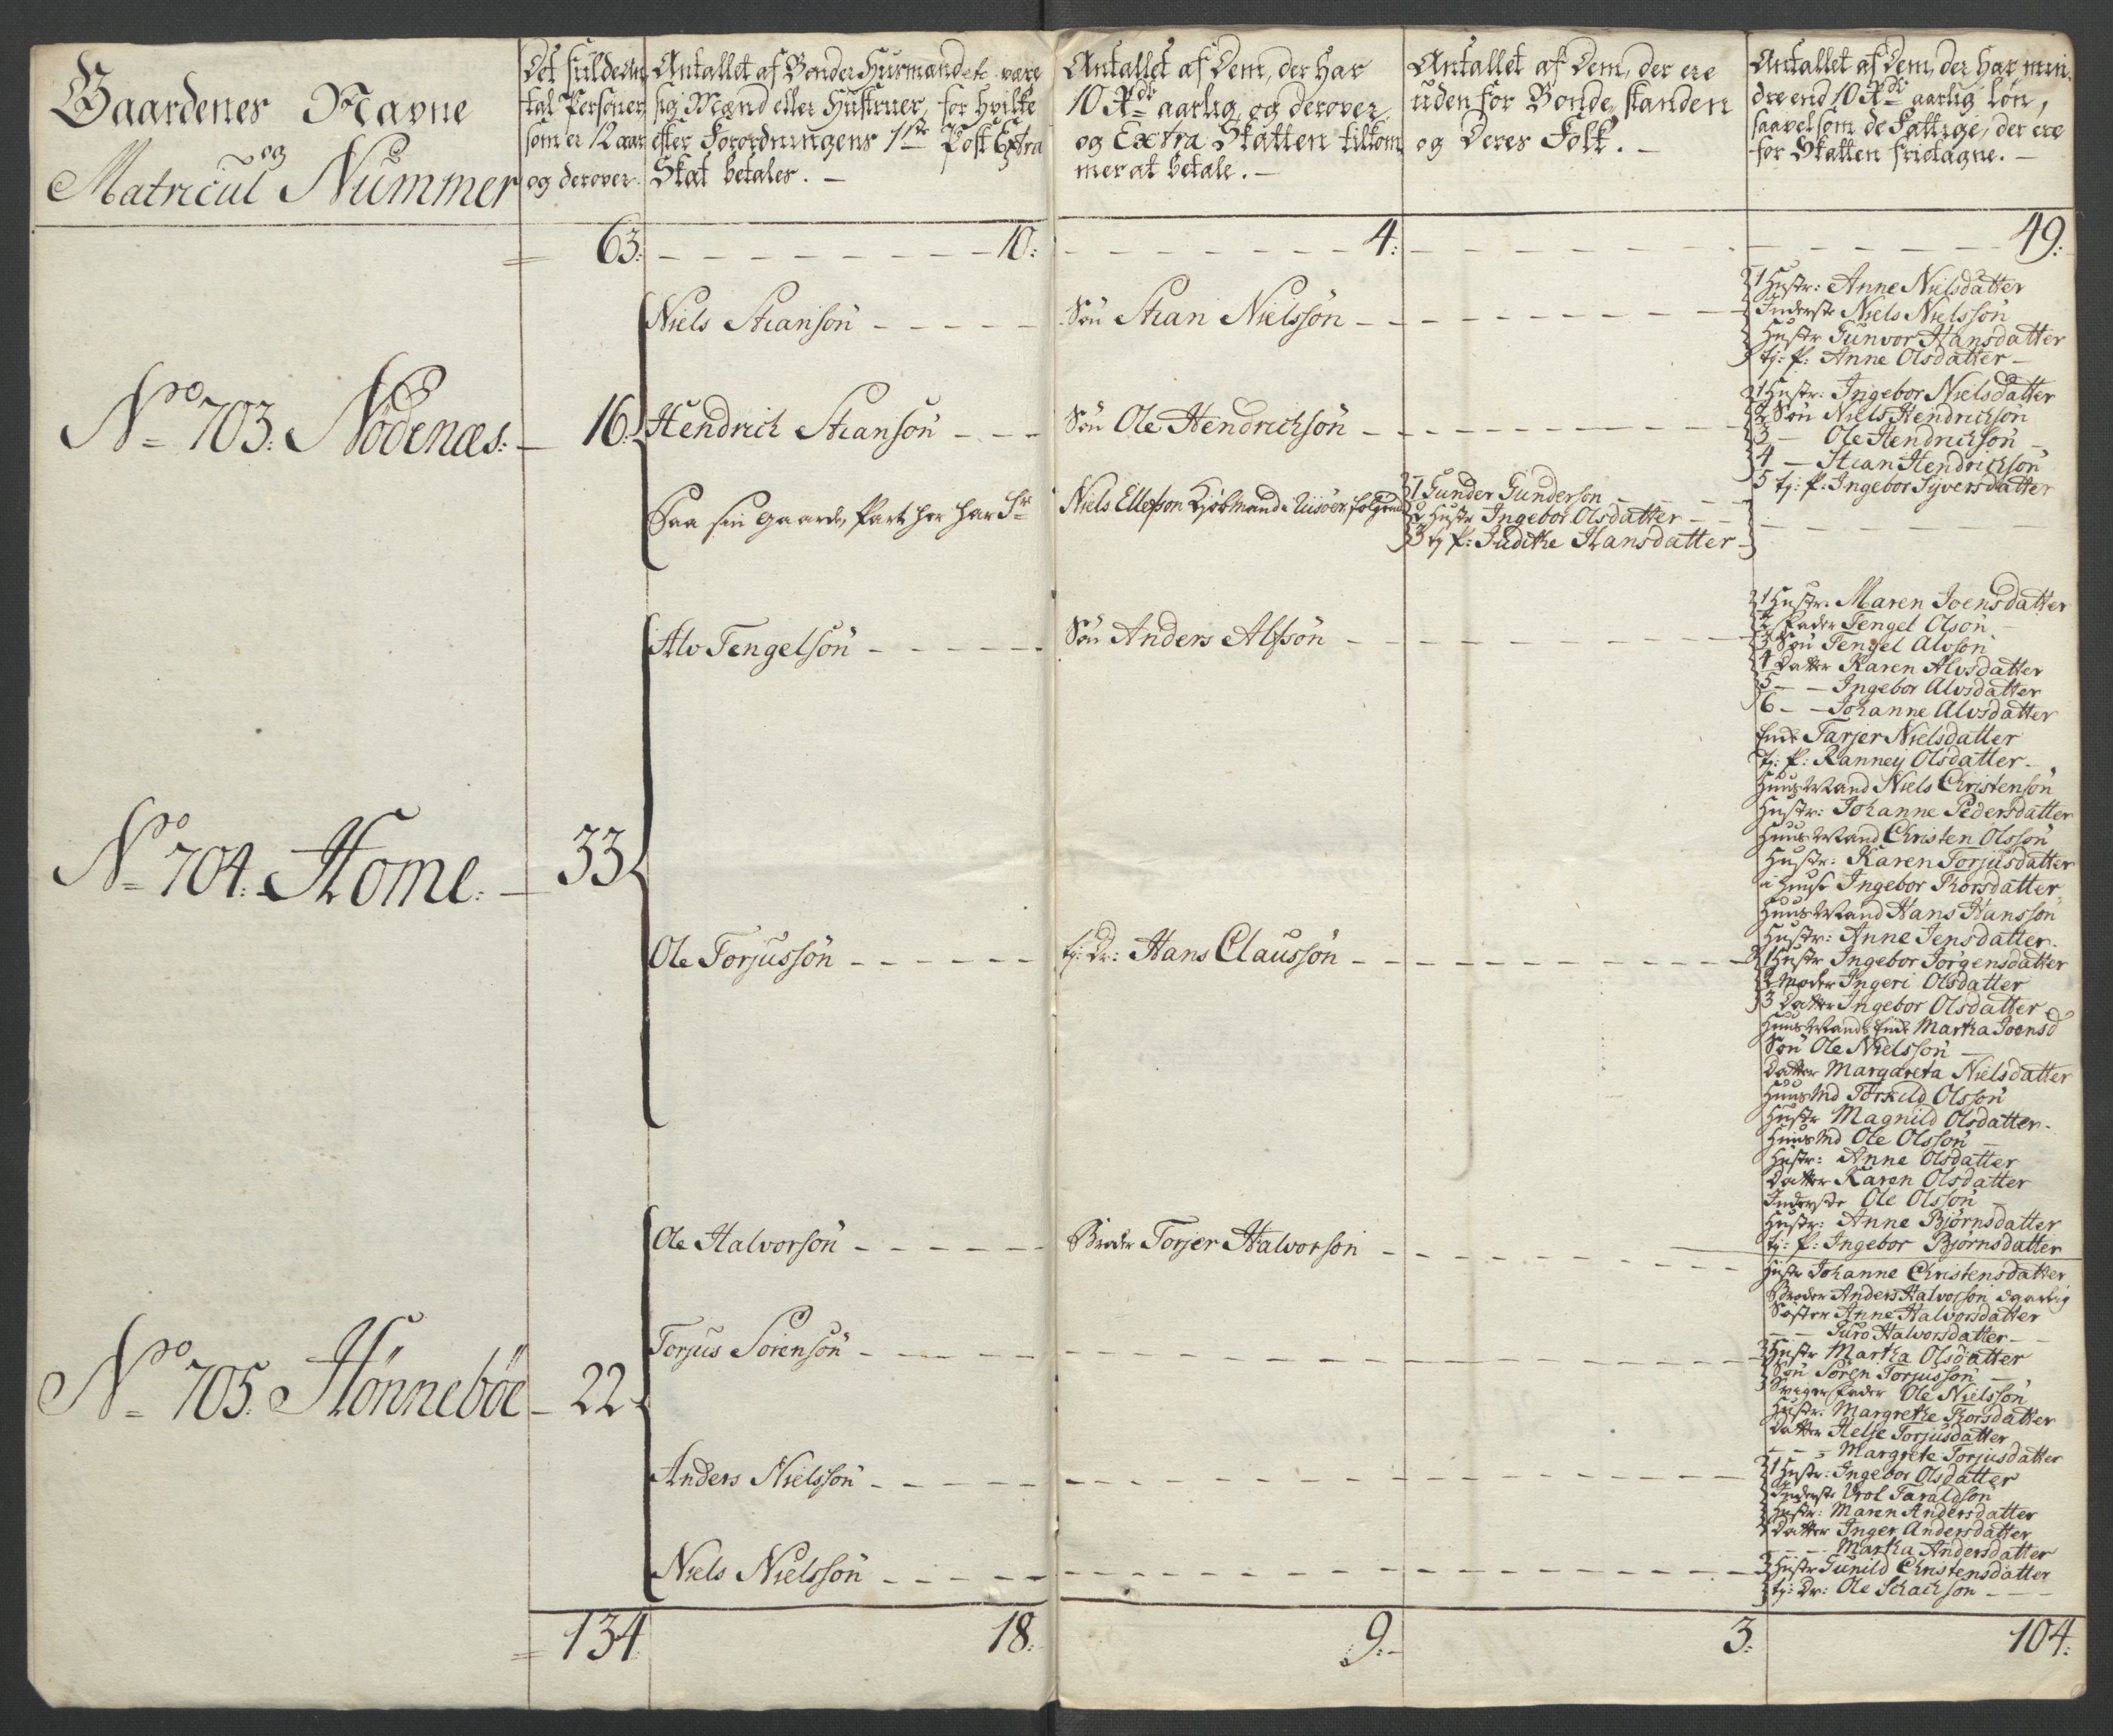 Gaardenes Navne
og
Matricul Nummer
Det fulde An
tal Personer
som er 12 aar
og derover.
Antallet af Bonder Husmænd etc være
sig Mænd eller Hustruer, for hvilke
efter Forordningens 1ste Post Extra
Skat betales. —
Antallet af Dem, der har
10 Rdr aarlig og derover,
og Extra Skatten tilkom
mer at betale. —
Antallet af Dem, der ere
uden for Bonde standen
og Deres Folk. —
Antallet af Dem, der har min
dre end 10 Rdr aarlig Løn,
saavelsom de Fattige, der ere
for Skatten frietagne. —
63: 10: 4: 49:
No 703. Nödenæs: 16.
Niels Stianson
Søn Stian Nielsson
1 Hustr: Anne Nielsdatter
Inderste Niels Nielsson
Hustr Gunvor Hansdatter
tj: P: Anne Olsdatter
Hendrich Stianson
Søn Ole Hendrichson
1 Hustr: Ingebor Nielsdatter
2 Søn Niels Hendrichson
3 — Ole Hendrichson
4 — Stian Hendrichson
5 tj: P: Ingebor Syversdatter
Paa sin gaarde Part her har Sr
Niels Ellefson Kjøbmand i Riisöer følgende
1 Gunder Gunderson
2 Hustr Ingebor Olsdatter
3 tj P: Judithe Hansdatter
No 704. Home. 33
Alv Tengelson
Søn Anders Alfson
1 Hustr. Maren Joensdatter
2 Fader Tengel Olson
3 Søn Tengel Alvson
4 Datter Karen Alvsdatter
5 — — Ingebor Alvsdatter
6 — — Johanne Alvsdatter
Enke Tarjer Nielsdatter
tj: P: Ranney Olsdatter
Huus Mand Niels Christenson
Hustr: Johanne Pedersdatter
Huus Mand Christen Olsson
Hustr: Karen Torjusdatter
i Huuse Ingebor Thorsdatter
Huus Mand Hans Hansson
Hustr: Anne Jensdatter
Ole Torjusson
tj: Dr: Hans Clausson
1 Hustr Ingebor Jörgensdatter
2 Moder Ingeri Olsdatter
3 Datter Ingebor Olsdatter
Huus Mands Enke Martha Joensd
Søn Ole Nielsson
Datter Margareta Nielsdatter
Huus Md Torkild Olsson
Hustr Magnild Olsdatter
Huus Md Ole Olsson
Hustr: Anne Olsdatter
Datter Karen Olsdatter
Inderste Ole Olsson
Hustr: Anne Björnsdatter
tj: P: Ingebor Björnsdatter
No 705. Hönneböe 22
Ole Halvorson
Broder Torjer Halvorson
Hustr Johanne Christensdatter
Broder Anders Halvorson daarlig
Söster Anne Halvorsdatter
— — Guro Halvorsdatter
Torjus Sörenson
Hustr Martha Olsdatter
Søn Sören Torjusson
Svigerfader Ole Nielsson
Hustr. Margrethe Thorsdatter
Datter Helje Torjusdatter
— — Margrete Torjusdatter
Anders Nielsson
1 Hustr: Ingebor Olsdatter
Inderste Urol Taraldson
Hustr: Maren Andersdatter
Datter Inger Andersdatter
— — Martha Andersdatter
Niels Nielsson
Hustr Gunild Christensdatter
tj: Dr: Ole Schachson
134 18: 9: 3: 104: